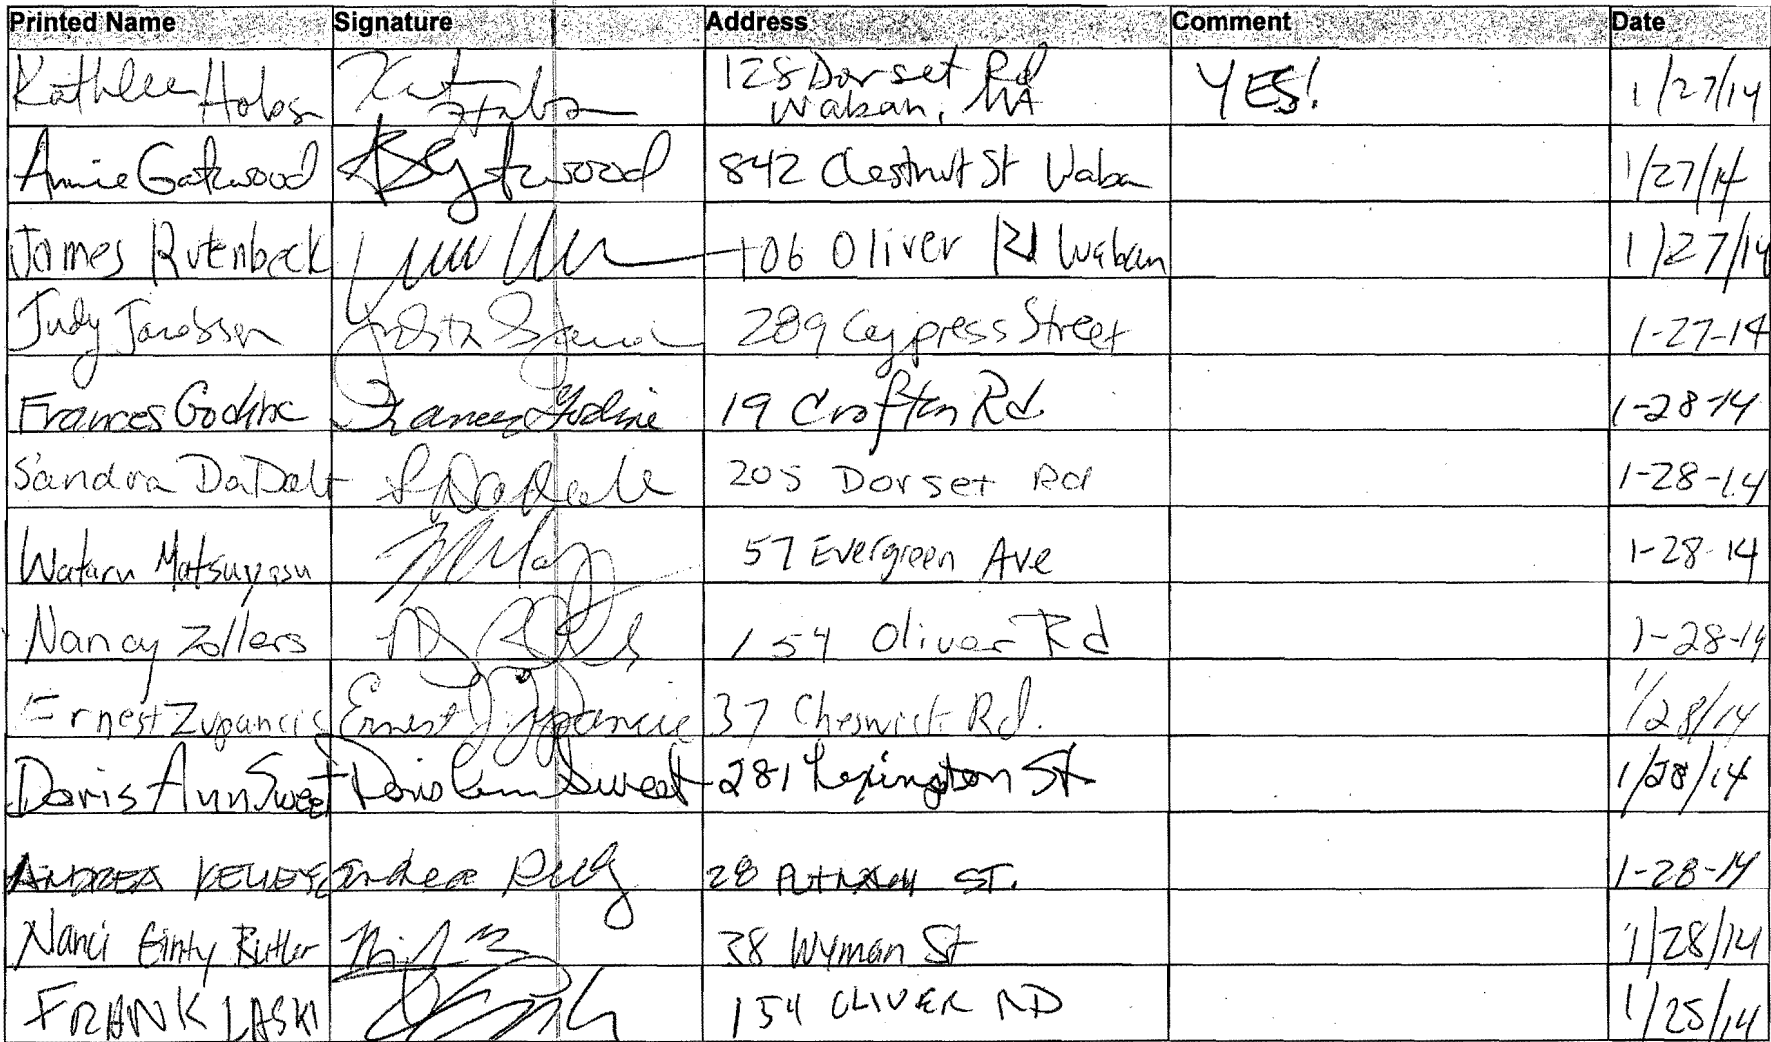 Printed Name Signature Address Comment Date
Kathleen Hobson 128 Dorset Rd YES! 1/27/14
Waban, MA
Annie Gatewood 842 Chestnut St Waban 1/27/14
James Rutenbeck 106 Oliver Rd Waban 1/27/14
Judy Jacobson 289 Cypress Street 1-27-14
Frances Godine Frances Godine 19 Crofton Rd. 1-28-14
Sandra DaDalt S DaDalt 205 Dorset Rd 1-28-14
Wataru Matsuyasu 57 Evergreen Ave 1-28-14
Nancy Zollers 154 Oliver Rd 1-28-14
Ernest Zupancic Ernest J. Zupancic 37 Cheswick Rd. 1/28/14
Doris Ann Sweet Doris Ann Sweet 281 Lexington St. 1/28/14
ANDREA KELLEY Andrea Kelley 28 ST. 1-28-14
Nanci Ginty Butler 38 Wyman St 1/28/14
FRANK LASKI 154 OLIVER RD 1/25/14